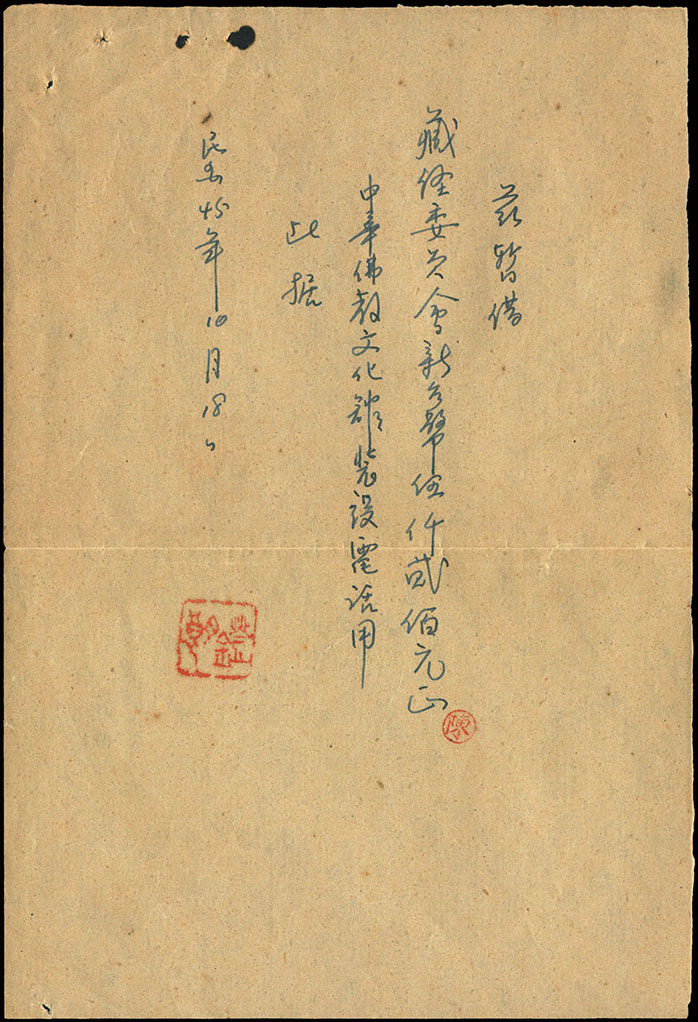 茲暫借
藏經委員會新台幣伍仟貳佰元正
陳
中華佛教文化館裝設電話用
此据
民国45年10月18日